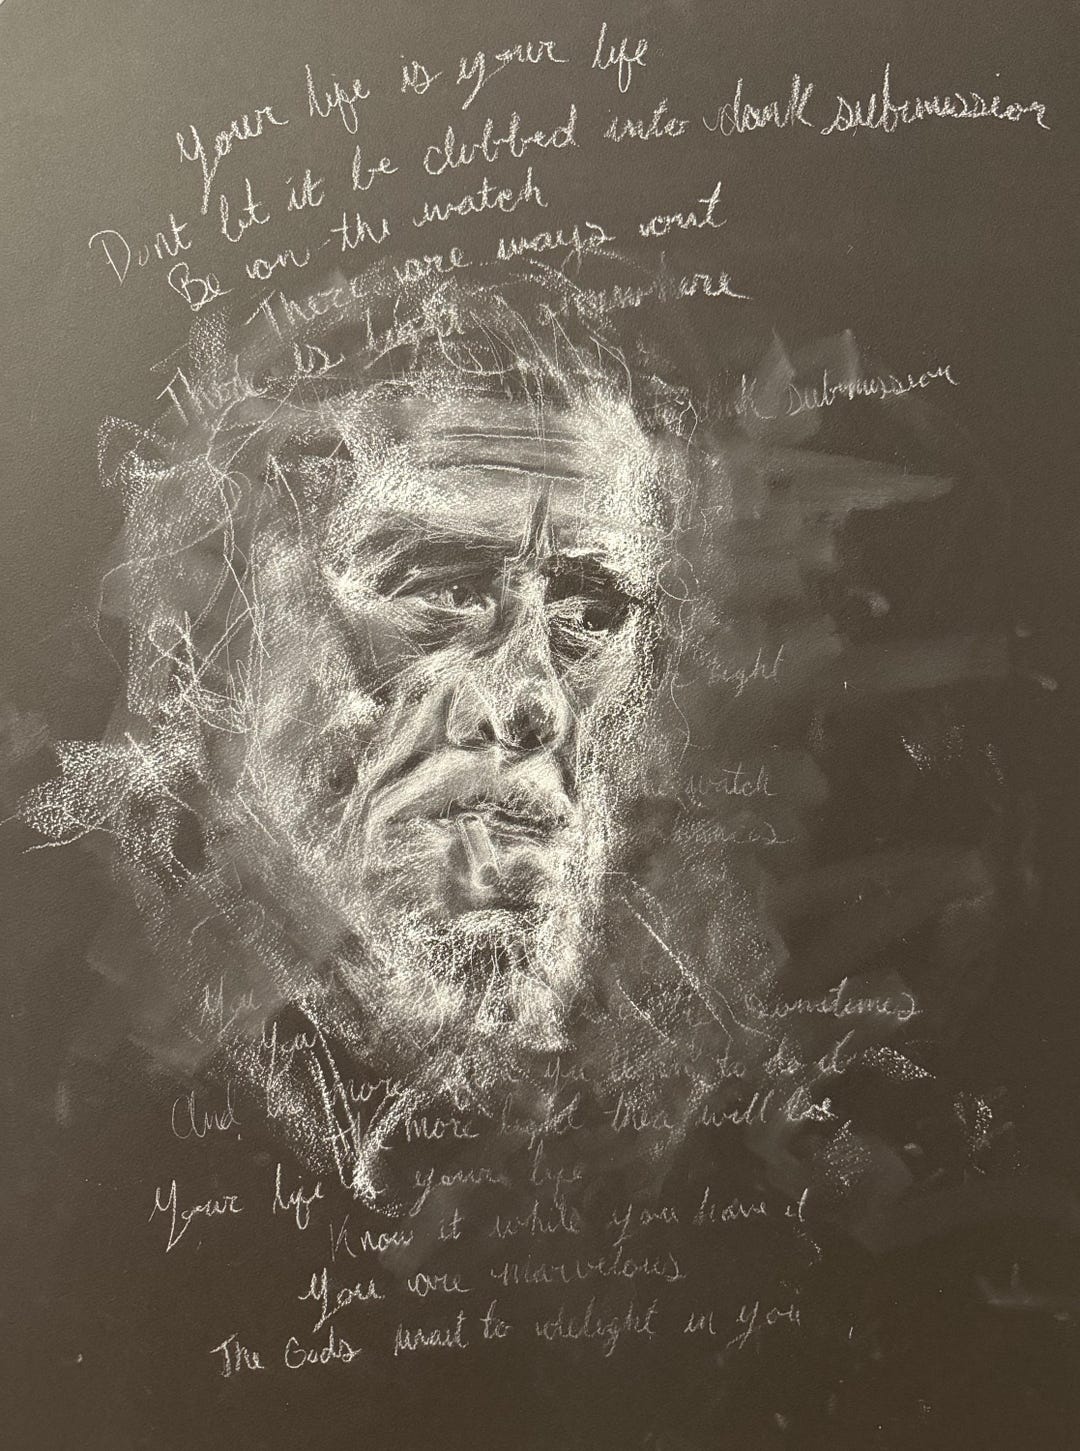 Your life is your life
Dont let it be clubbed into dank submission
Be on the watch
There are ways out
There is light somewhere
dank submission
light
the watch
chances
You sometimes
You
And more you learn to do it
the more light there will be
Your life is your life
Know it while you have it
You are marvelous
The Gods wait to delight in you